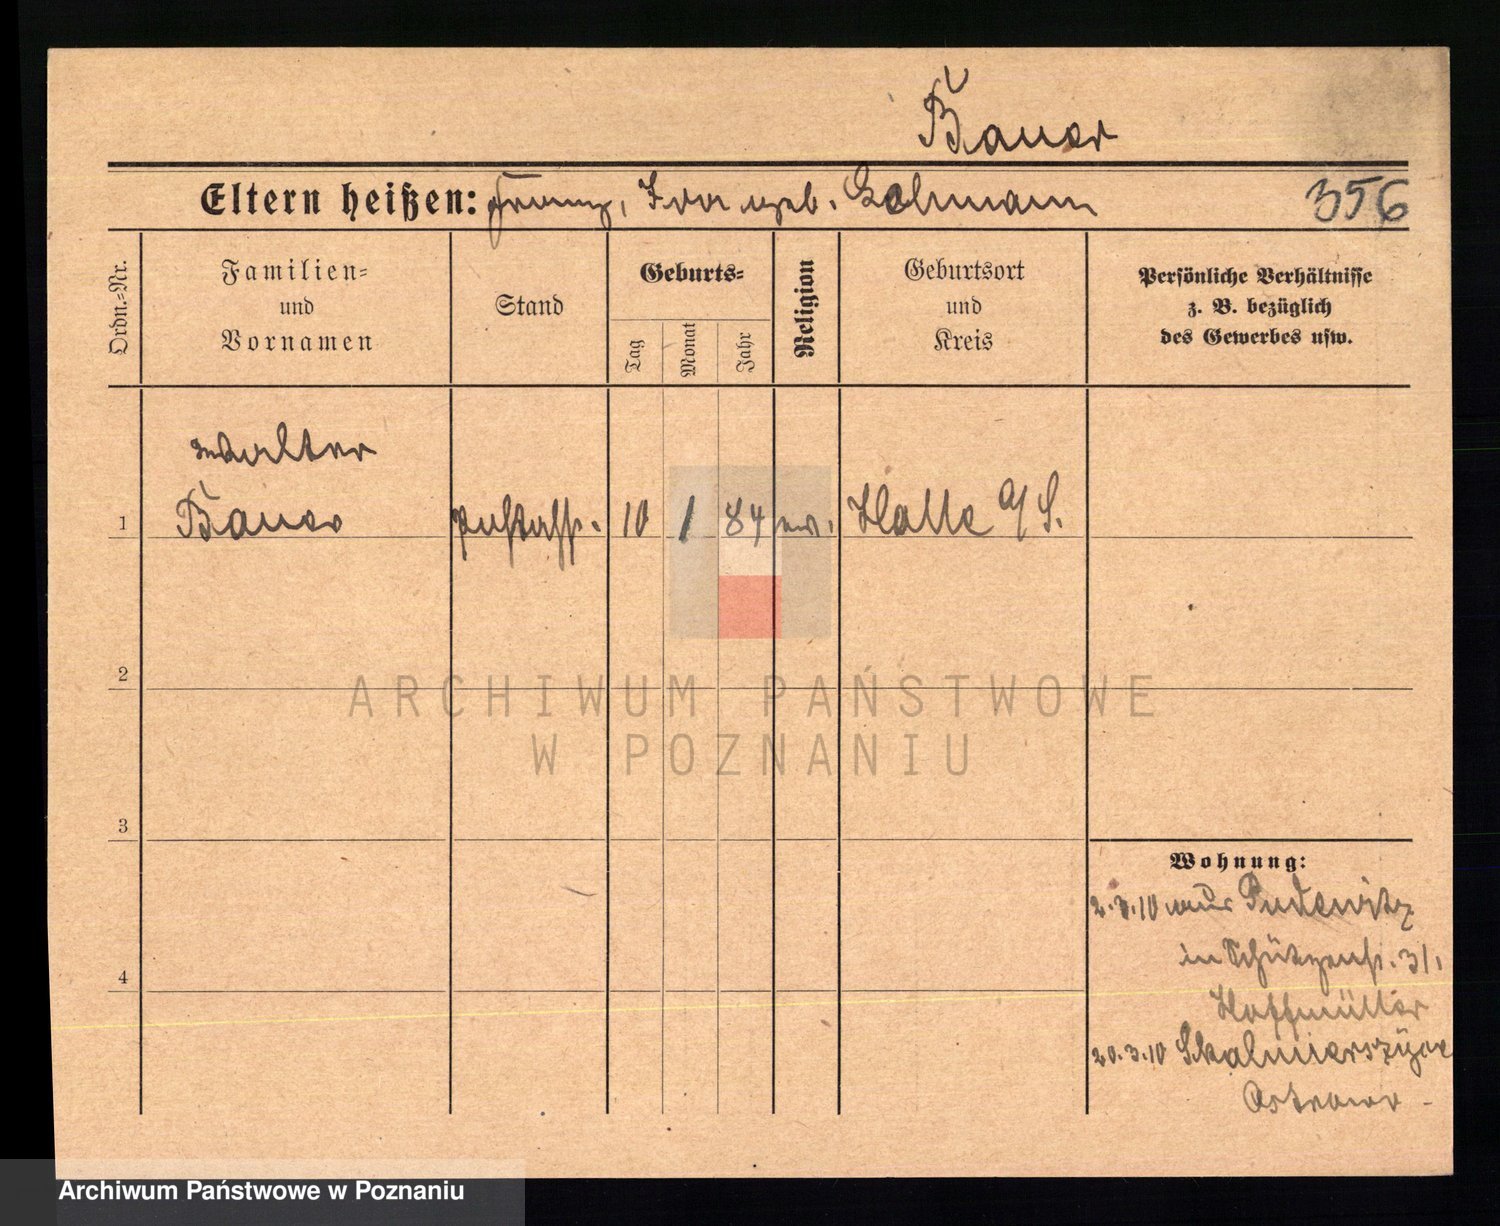 Bauer
Eltern heißen: Franz, Ida geb. Gehmann
356
Ordn.-Nr.
Familien-
und
Vornamen
Stand
Geburts-
Tag
Monat
Jahr
Religion
Geburtsort
und
Kreis
Persönliche Verhältnisse
z. B. bezüglich
des Gewerbes usw.
Walter
1 Bauer Postass. 10 1 84 ev. Halle a/S.
2
3
4
Wohnung:
2.3.10 aus Pudewitz
in Schützenstr. 3/I
Hoffmüller
20.3.10 Skalmierszyce
Ostrowo
ARCHIWUM PAŃSTWOWE
W POZNANIU
Archiwum Państwowe w Poznaniu